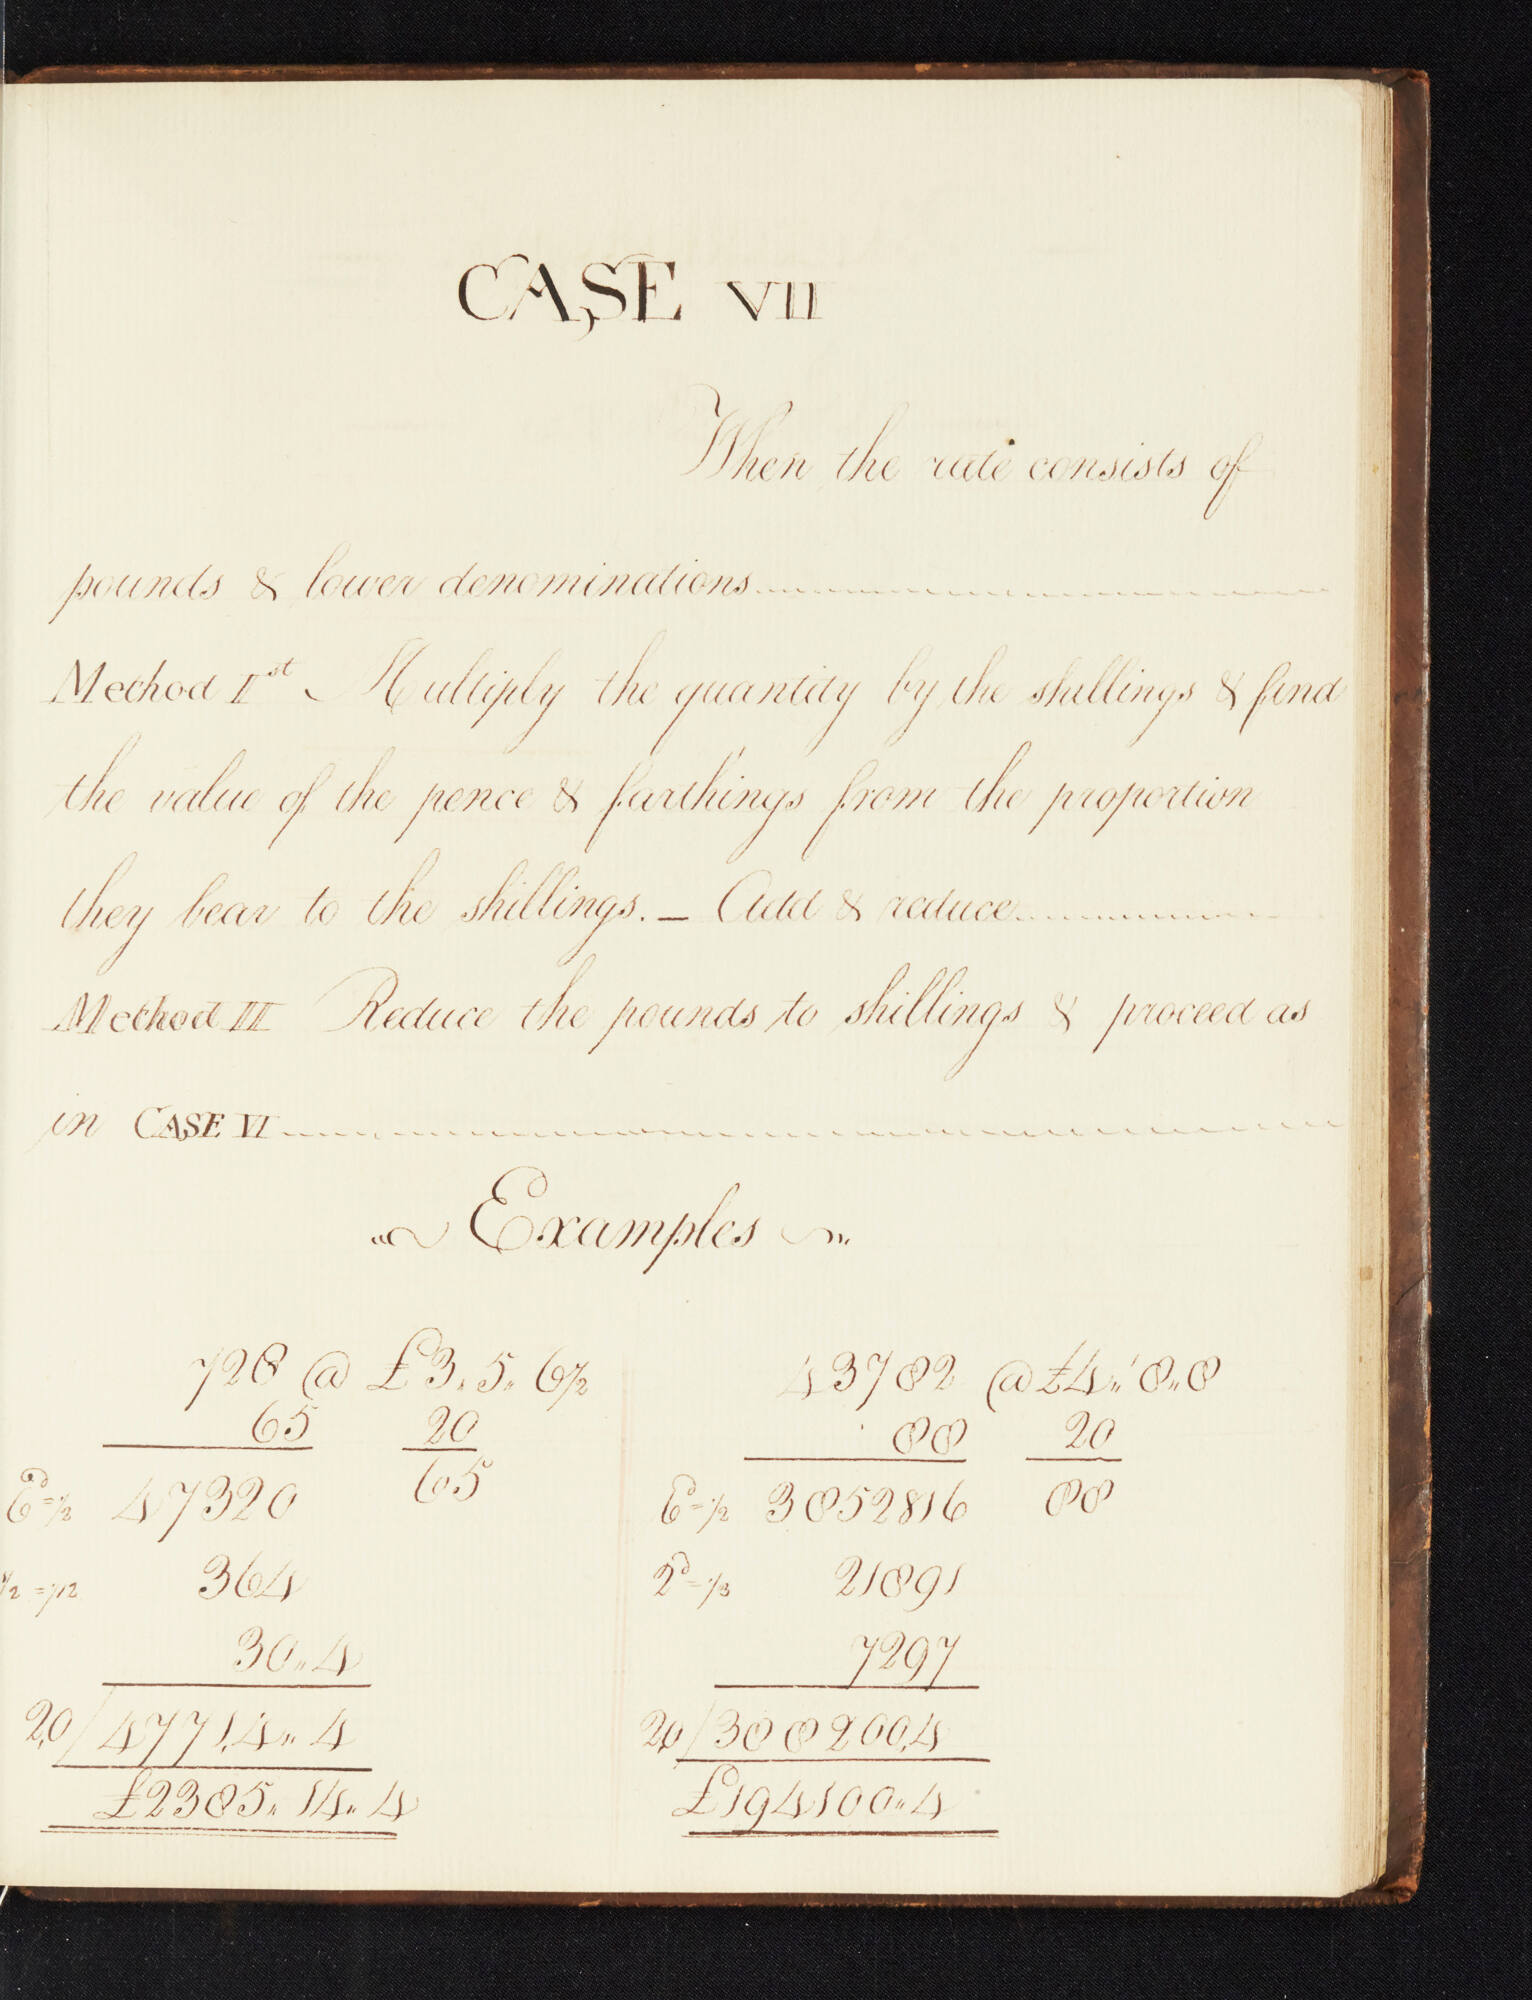 CASE VII
When the rate consists of
pounds & lower denominations
Method Ist Multiply the quantity by the shillings & find
the value of the pence & farthings from the proportion
they bear to the shillings. — Add & reduce
Method II Reduce the pounds to shillings & proceed as
in CASE VI
Examples
728 @ £3„ 5„ 6½
65 20
6d=½ 47320 65
½=1/12 364
30„4
2,0/4771,4„ 4
£2385„ 14„ 4
43782 @ £4„ 8„ 8
88 20
6d=½ 3852816 88
2d=⅓ 21891
7297
2,0/388200,4
£194100„4